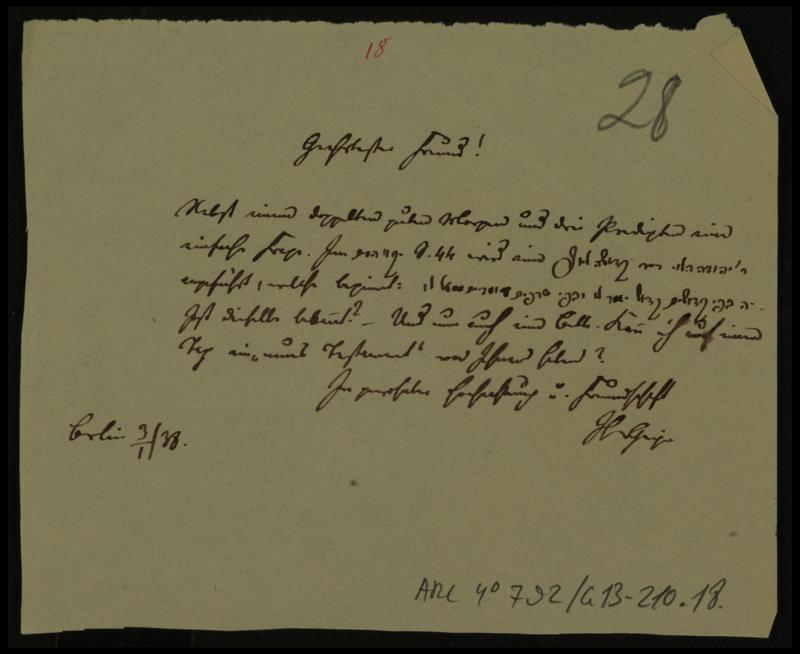 18
28
Geehrtester Freund!
Nebst einem doppelten guten Morgen und drei Predigten eine
einfache Frage. Im S. 44 wird eine
angeführt, welche beginnt:
Ist dieselbe bekannt? – Und nun auch eine Bitte. Kann ich auf einen
Tag ein „neues Testament“ von Ihnen haben?
In Hochachtung u. Freundschaft
Ihr Geiger
Berlin 3/1/38.
ARC 4° 792/G13-210.18.